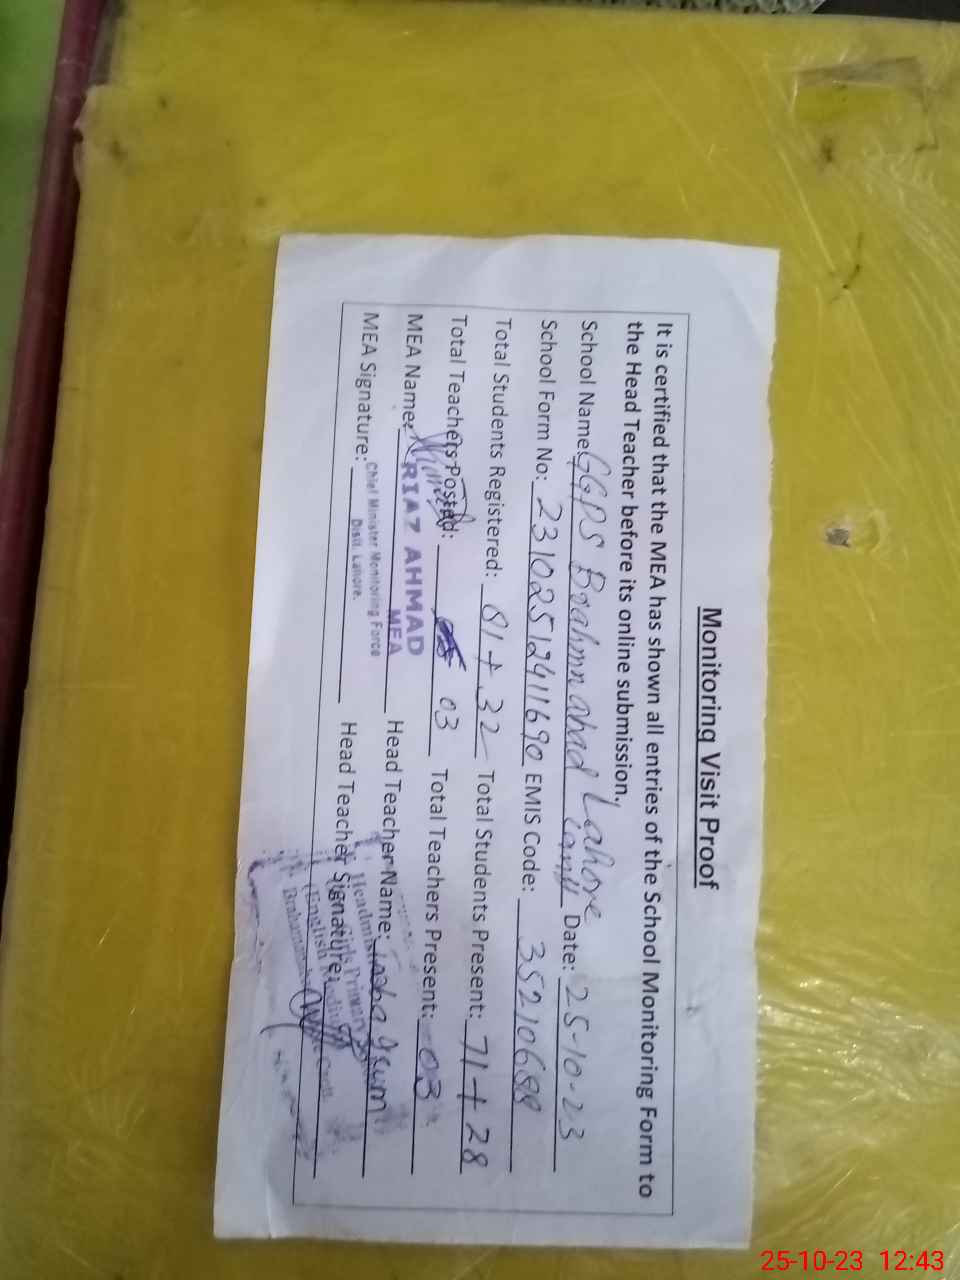 Monitoring Visit Proof
It is certified that the MEA has shown all entries of the School Monitoring Form to
the Head Teacher before its online submission.
School Name: GGPS Brahmnabad Lahore Cantt Date: 25-10-23
School Form No: 23102512411690 EMIS Code: 35210688
Total Students Registered: 81+32 Total Students Present: 71+28
Total Teachers Posted: 03 Total Teachers Present: 03
MEA Name: RIAZ AHMAD Head Teacher Name:
MEA
MEA Signature: Head Teacher Signature:
Chief Minister Monitoring Force
Distt. Lahore.
Headmistress
Girls Primary
(English Medium)
25-10-23 12:43